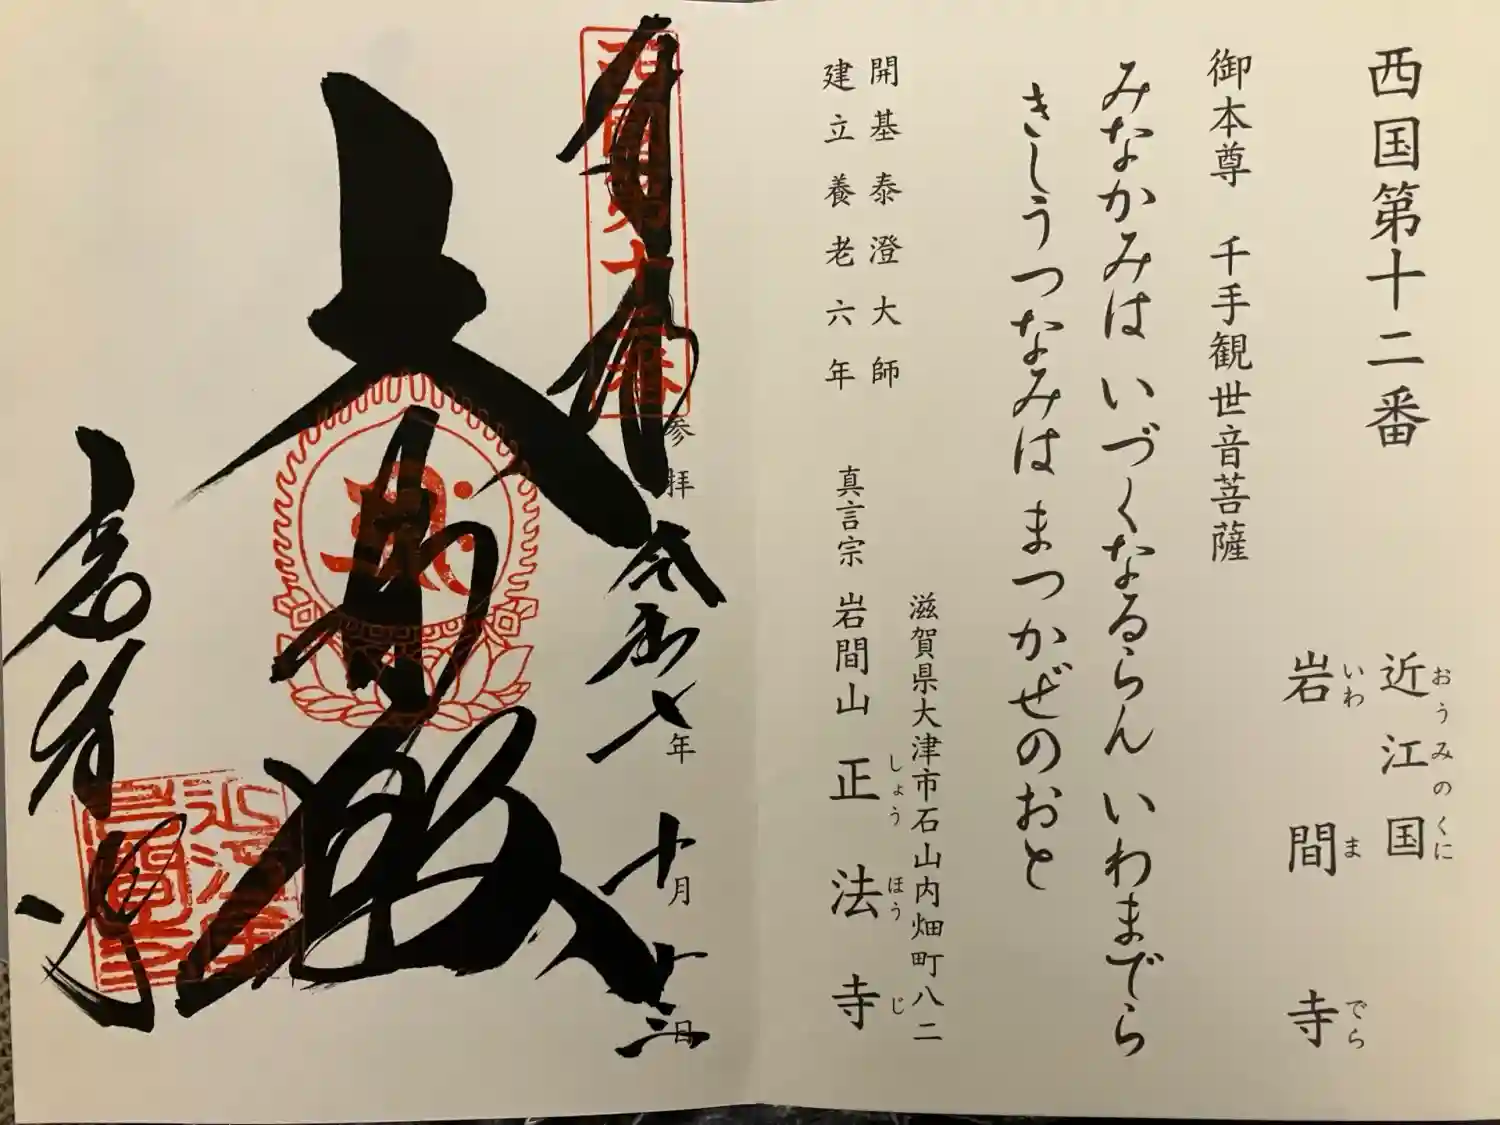 西国第十二番
近江国
おうみのくに
岩間寺
いわ ま でら
御本尊 千手観世音菩薩
みなかみは いづくなるらん いわまでら
きしうつなみは まつかぜのおと
開基泰澄大師
建立養老六年
滋賀県大津市石山内畑町八二
真言宗 岩間山 正法寺
しょう ほう じ
奉拝
西國第十二番
参拝 令和七年 十月 十三日
大悲殿
岩間寺